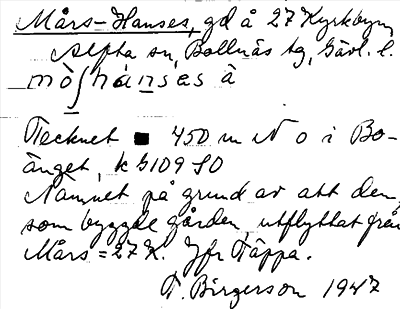 Mårs-Hanses, gd å 27 Kyrkbyn,
Alfta sn, Bollnäs tg, Gävl. l.
mò ʃhánsas å
Tecknet ■ 450 m N o i Bo-
änget, k b 109 SO
Namnet på grund av att den,
som byggde gården, utflyttat från
Mårs = 27 K. Jfr Täppa.
T. Birgerson 1947